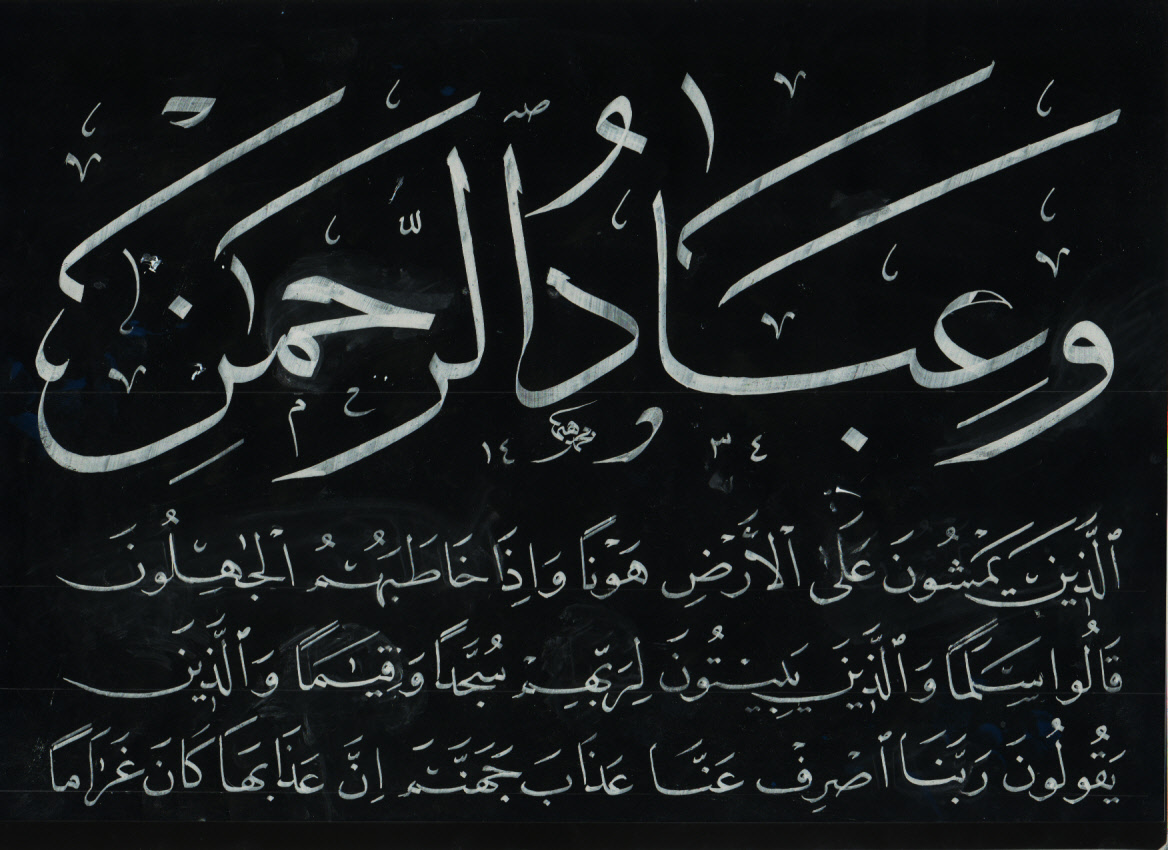 وَعِبَادُ الرَّحْمٰنِ
١٤ ٣٤
الَّذِينَ يَمْشُونَ عَلَى الْأَرْضِ هَوْنًا وَإِذَا خَاطَبَهُمُ الْجٰهِلُونَ
قَالُوا سَلٰمًا وَالَّذِينَ يَبِيتُونَ لِرَبِّهِمْ سُجَّدًا وَقِيٰمًا وَالَّذِينَ
يَقُولُونَ رَبَّنَا اصْرِفْ عَنَّا عَذَابَ جَهَنَّمَ اِنَّ عَذَابَهَا كَانَ غَرَامًا